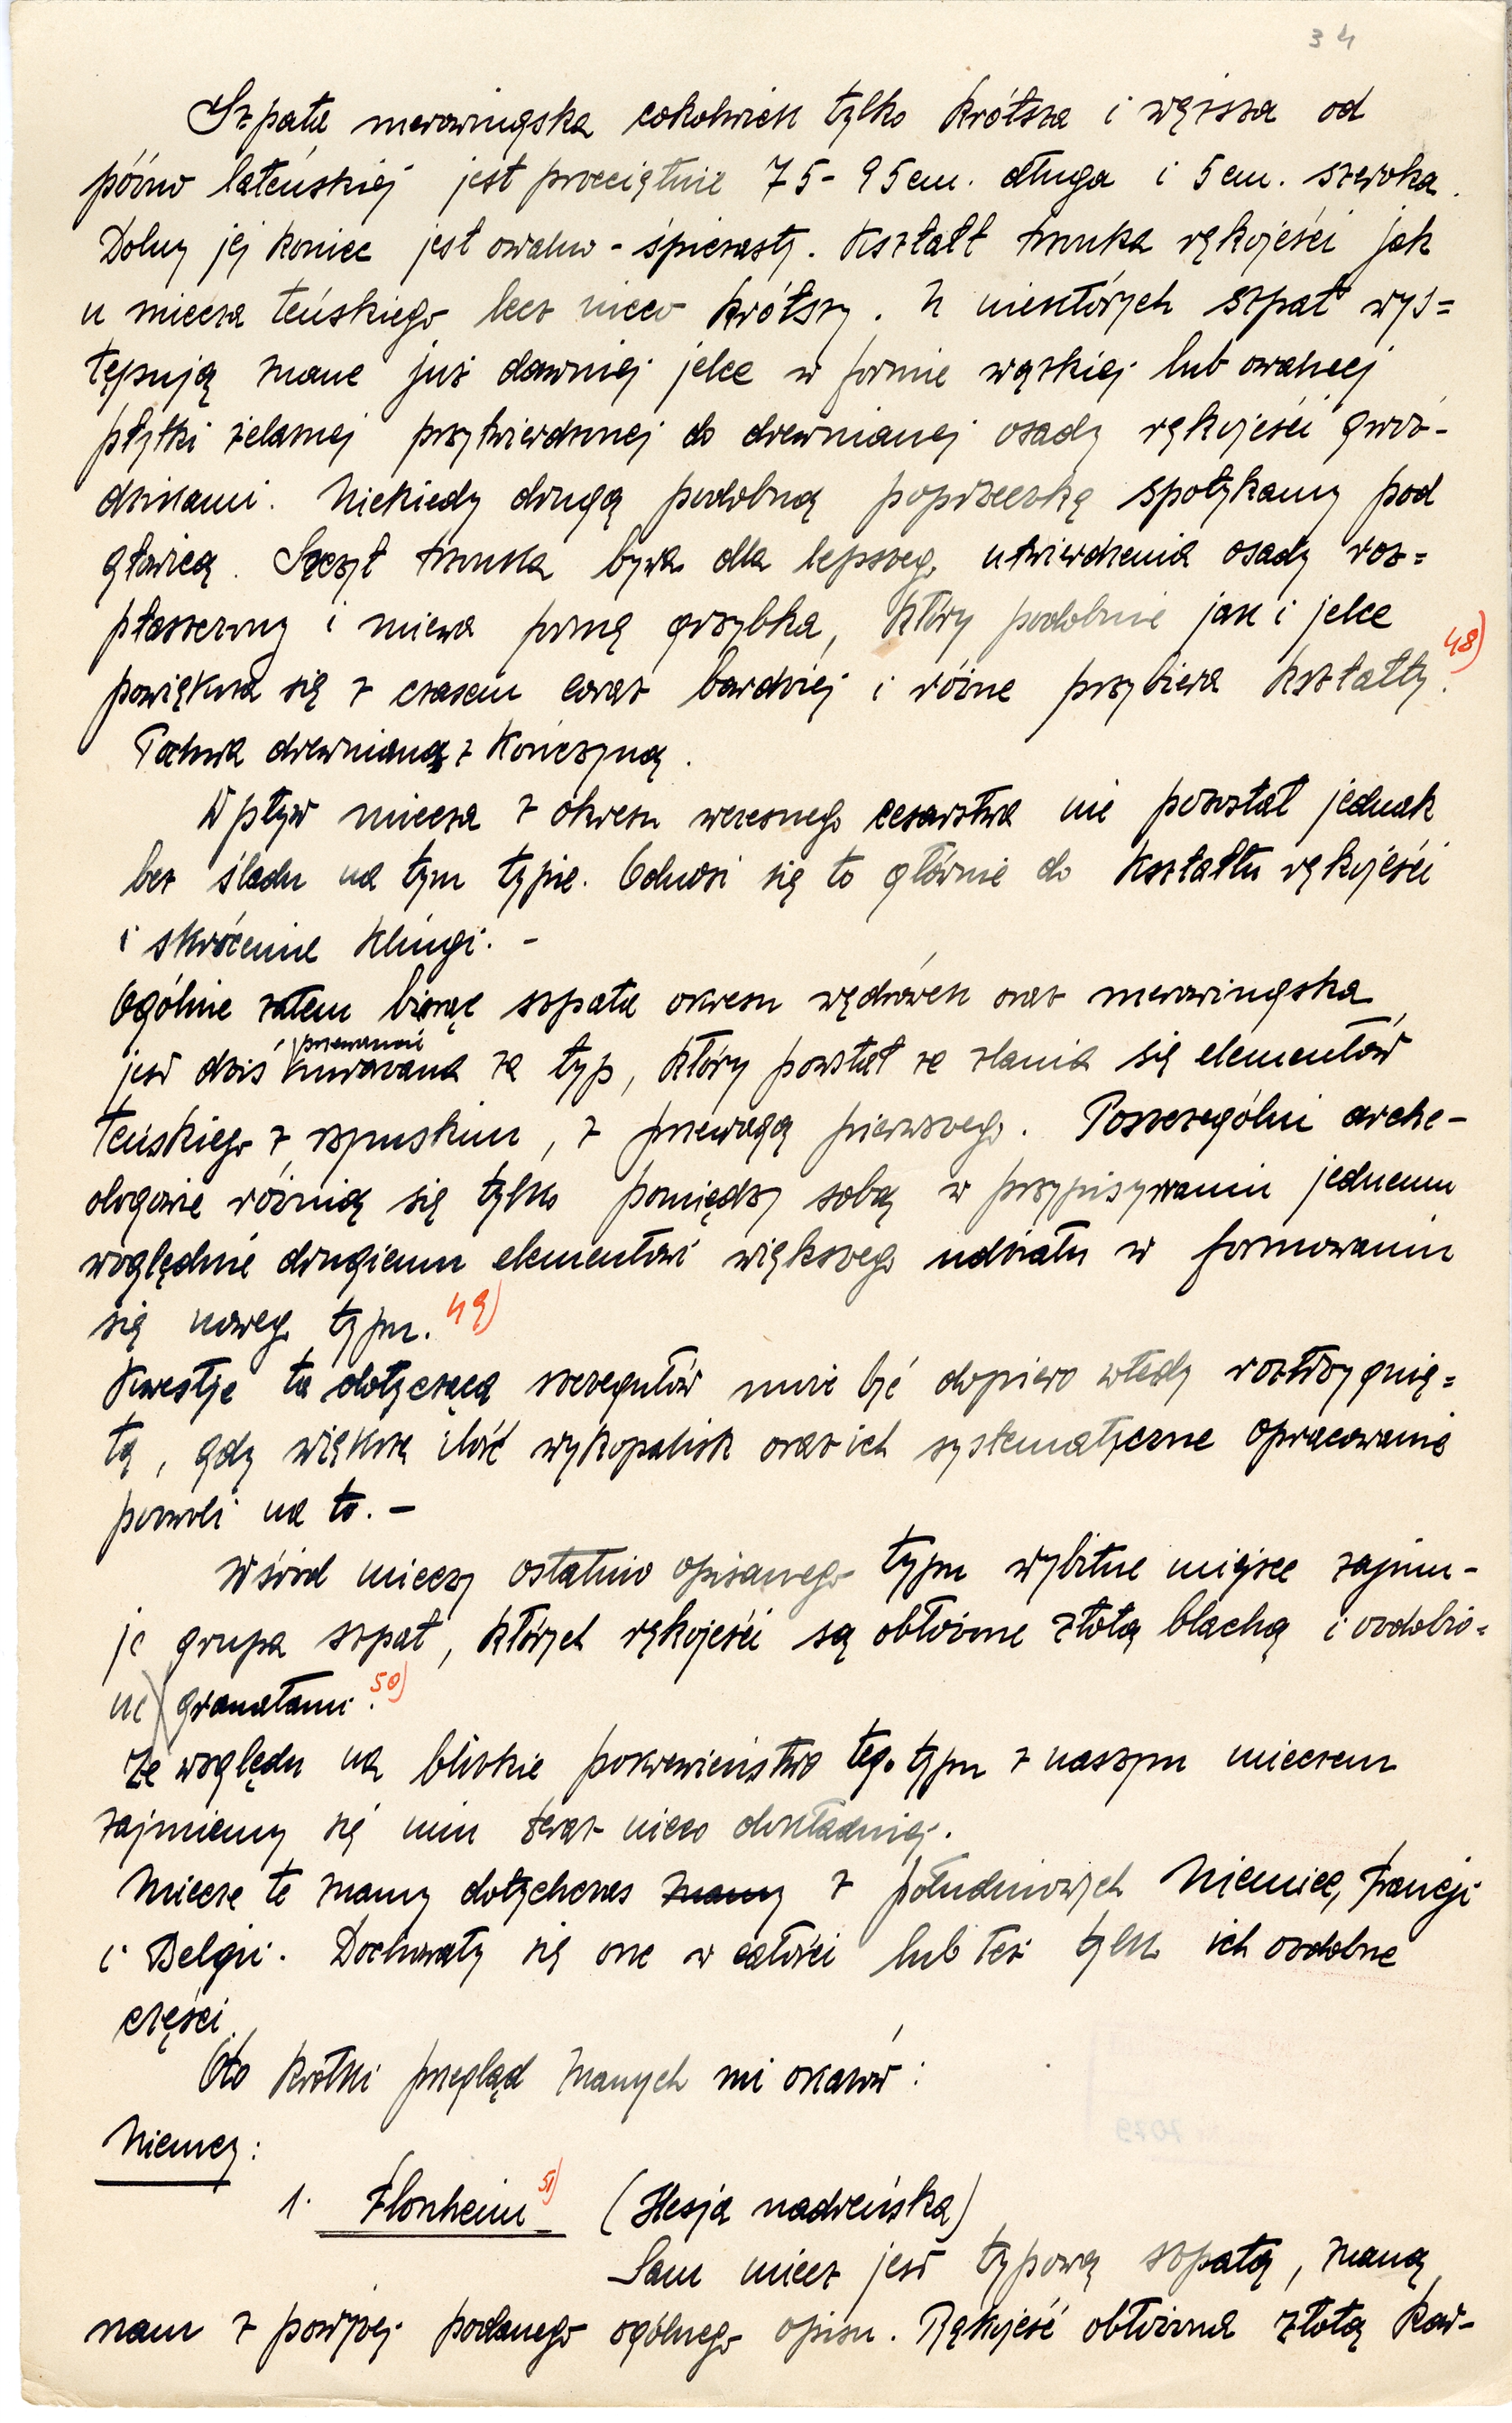 34
Szpata merowingska cokolwiek tylko krótsza i węższa od
późno lateńskiej jest przeciętnie 75-95cm. długa i 5cm. szeroka.
Dolny jej koniec jest owalno-śpiczasty. Kształt trzonka rękojeści jak
u miecza teńskiego lecz nieco krótszy. U niektórych szpat wys=
tępują znane już dawniej jelce w formie wązkiej lub owalnej
płytki żelaznej przytwierdzonej do drewnianej osady rękojeści gwoź-
dzikami. Niekiedy drugą podobną poprzeczką spotykamy pod
głowicą. Szczyt trzonka bywa dla lepszego utwierdzenia osady roz=
płaszczony i miewa formę grzybka, który podobnie jak i jelce
powiększa się z czasem coraz bardziej i różne przybiera kształty.48)
Pochwa drewniana z kończyną.
Wpływ miecza z okresu wczesnego cesarstwa nie pozostał jednak
bez śladu na tym typie. Odnosi się to głównie do kształtu rękojeści
i skrócenie klingi. -
Ogólnie zatem biorąc szpata okresu wędrówek oraz merowingska
przeważnie
jest dziś uważana za typ, który powstał ze zlania się elementów
teńskiego z rzymskim, z przewagą pierwszego. Poszczególni arche-
ologowie różnią się tylko pomiędzy sobą w przypisywaniu jednemu
względnie drugiemu elementowi większego udziału w formowaniu
się nowego typu.49)
Kwestje ta dotycząca szczegółów może być dopiero wtedy rozstrzygnię=
tą, gdy większa ilość wykopalisk oraz ich systematyczne opracowanie
pozwoli na to. -
Wśród mieczy ostatnio opisanego typu wybitne miejsce zajmu-
je grupa szpat, których rękojeści są obłożone złotą blachą i ozdobio=
ne granatami.50)
Ze względu na bliskie pokrewieństwo tego typu z naszym mieczem
zajmiemy się nim teraz nieco dokładniej.
Miecze te znamy dotychczas znamy z południowych Niemiec, Francji
i Belgii. Dochowały się one w całości lub też tylko ich ozdobne
części.
Oto krótki przegląd znanych mi okazów:
Niemcy:
1. Flonheim51) (Hesja nadreńska)
Sam miecz jest typową szpatą, znaną
nam z powyżej podanego ogólnego opisu. Rękojeść obłożona złotą kar-